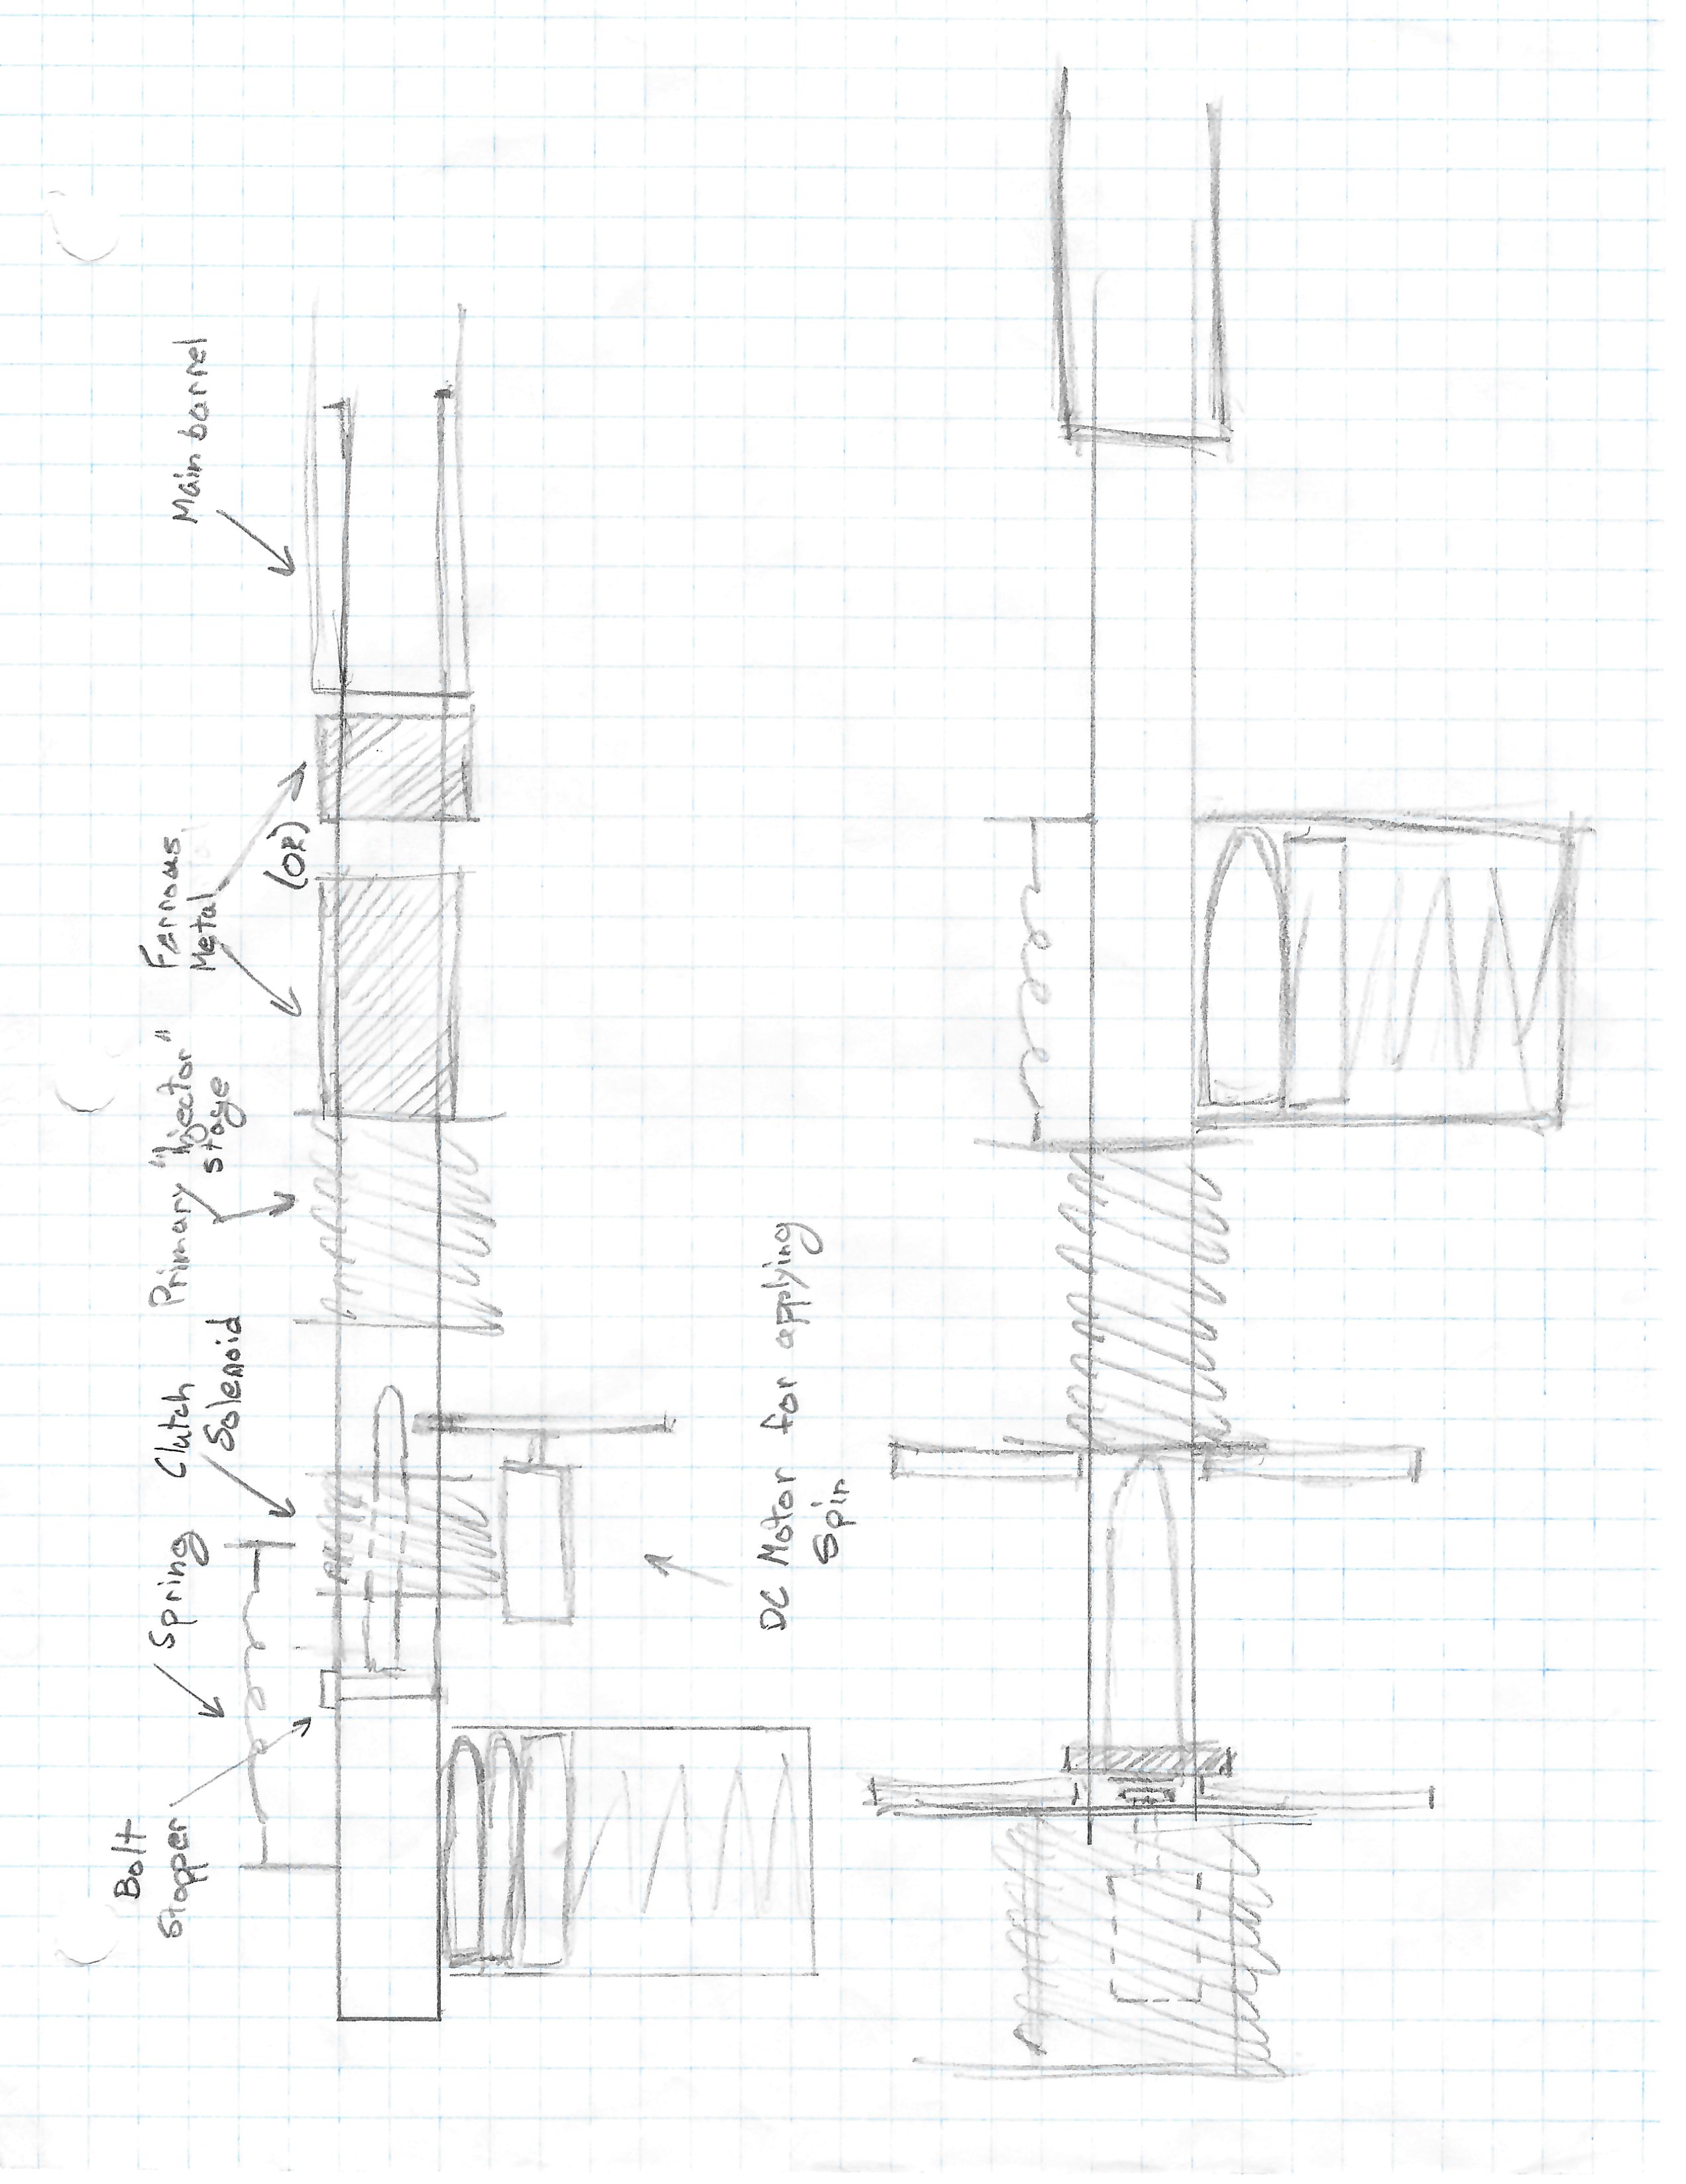 Bolt
Stopper
Spring
Clutch
Solenoid
Primary "Injector"
stage
Ferrous
Metal
(OR)
Main barrel
DC Motor for applying
Spin